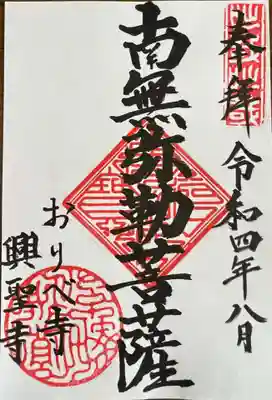 奉拝
令和四年八月
南無弥勒菩薩
おりべ寺
興聖寺